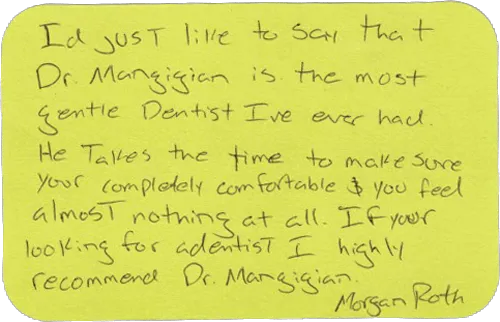 Id just like to say that
Dr. Mangigian is the most
gentle Dentist I've ever had.
He Takes the time to make sure
your completely comfortable & you feel
almost nothing at all. If your
looking for a dentist I highly
recommend Dr. Mangigian.
Morgan Roth